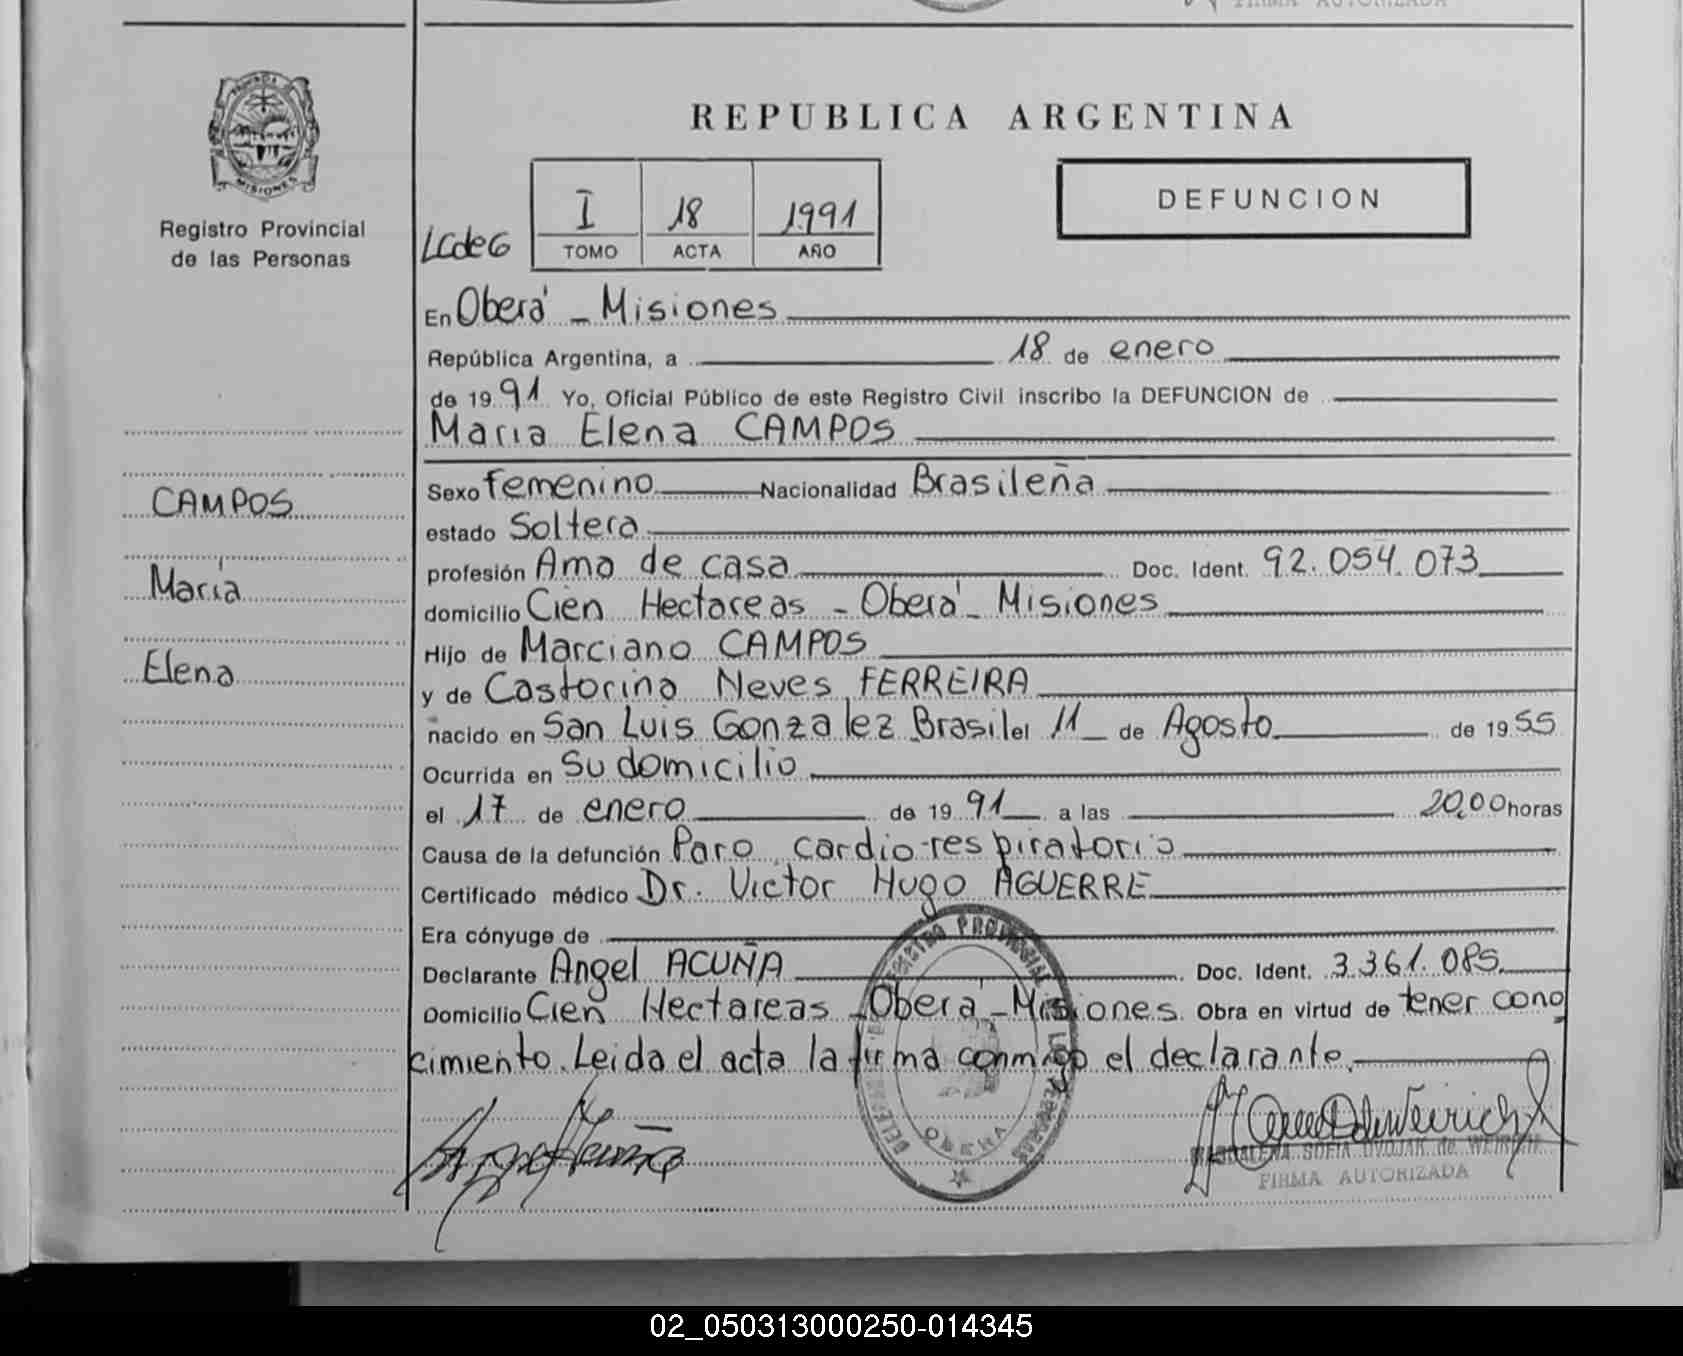 FIRMA AUTORIZADA
PROVINCIA DE
MISIONES
Registro Provincial
de las Personas
REPUBLICA ARGENTINA
DEFUNCION
LCdeG
I 18 1991
TOMO ACTA AÑO
En Oberá - Misiones
República Argentina, a 18 de enero
de 1991 Yo, Oficial Público de este Registro Civil inscribo la DEFUNCION de
Maria Elena CAMPOS
CAMPOS
María
Elena
Sexo femenino Nacionalidad Brasileña
estado Soltera
profesión Ama de casa Doc. Ident. 92.054.073
domicilio Cien Hectareas - Oberá - Misiones
Hijo de Marciano CAMPOS
y de Castorina Neves FERREIRA
nacido en San Luis Gonzalez Brasil el 11 de Agosto de 1955
Ocurrida en Su domicilio
el 17 de enero de 1991 a las 20,00 horas
Causa de la defunción Paro cardio-respiratorio
Certificado médico Dr. Victor Hugo AGUERRE
Era cónyuge de
Declarante Angel ACUÑA Doc. Ident. 3.361.085
Domicilio Cien Hectareas - Oberá - Misiones Obra en virtud de tener cono
cimiento. Leida el acta la firma conmigo el declarante.
REGISTRO PROVINCIAL DE LAS PERSONAS
OBERA
Angel Acuña
MAGDALENA SOFIA DVOJAK de WEIRICH
FIRMA AUTORIZADA
02_050313000250-014345